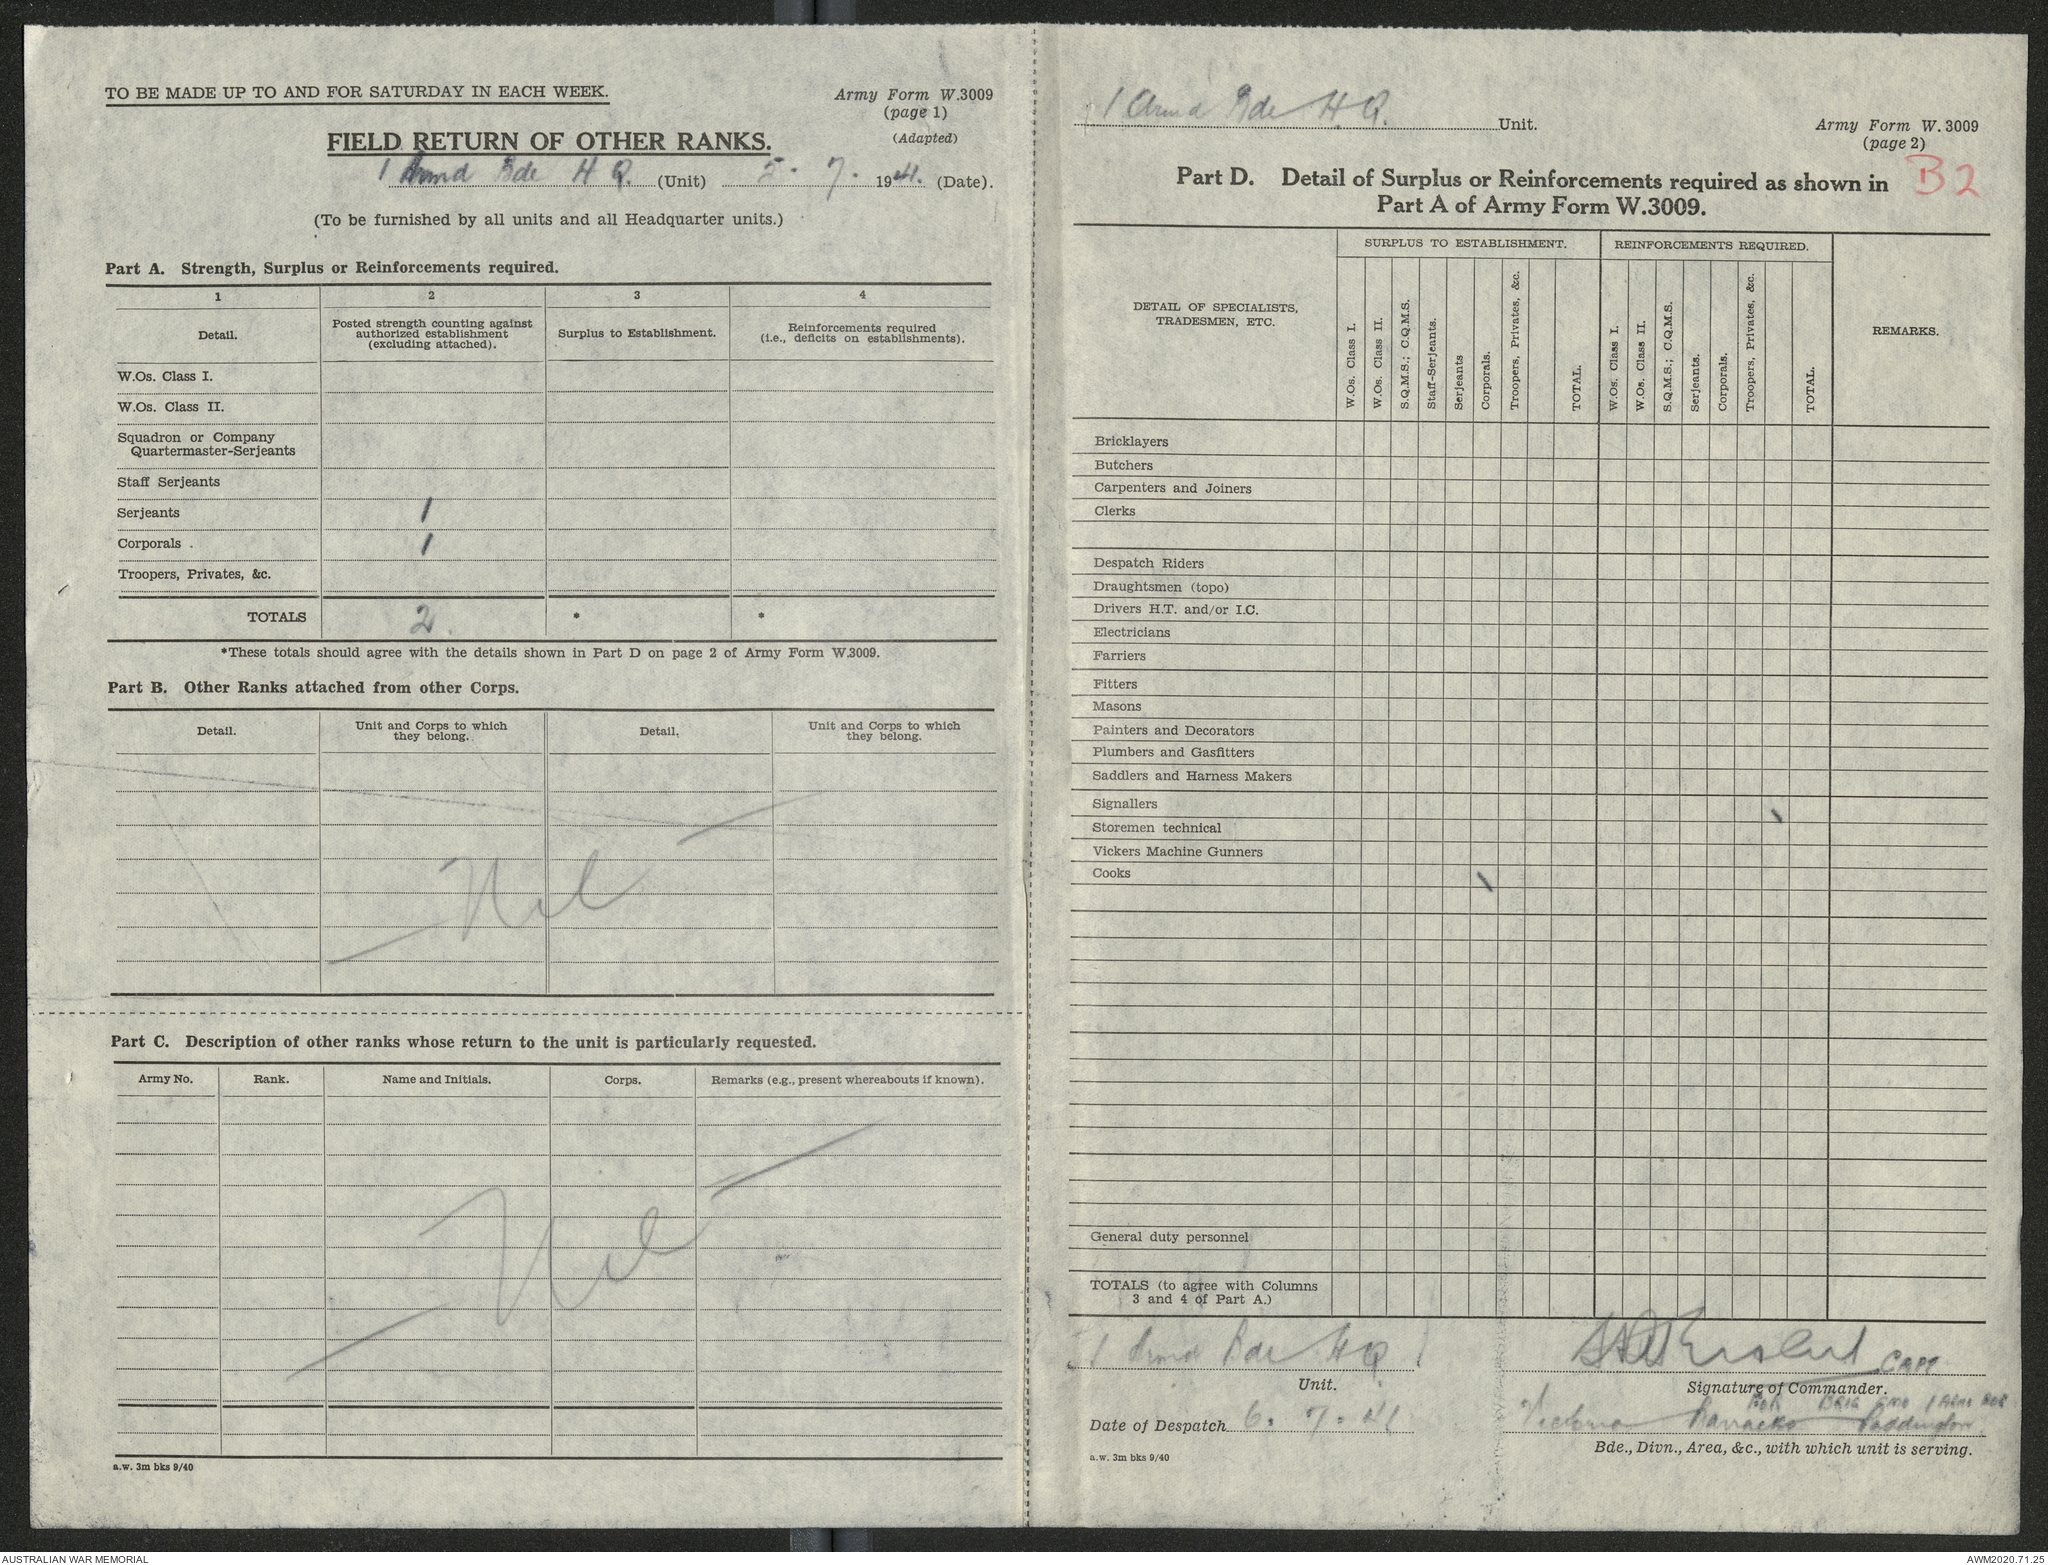 TO BE MADE UP TO AND FOR SATURDAY IN EACH WEEK.
Army Form W.3009
(page 1)
(Adapted)
FIELD RETURN OF OTHER RANKS.
1 Armd Bde H Q. (Unit) 5. 7. 1941. (Date).
(To be furnished by all units and all Headquarter units.)
Part A. Strength, Surplus or Reinforcements required.
1 2 3 4
Detail.
Posted strength counting against
authorized establishment
(excluding attached).
Surplus to Establishment.
Reinforcements required
(i.e., deficits on establishments).
W.Os. Class I.
W.Os. Class II.
Squadron or Company
Quartermaster-Serjeants
Staff Serjeants
Serjeants 1
Corporals 1
Troopers, Privates, &c.
TOTALS 2 * *
*These totals should agree with the details shown in Part D on page 2 of Army Form W.3009.
Part B. Other Ranks attached from other Corps.
Detail.
Unit and Corps to which
they belong.
Detail.
Unit and Corps to which
they belong.
Nil
Part C. Description of other ranks whose return to the unit is particularly requested.
Army No. Rank. Name and Initials. Corps. Remarks (e.g., present whereabouts if known).
Nil
a.w. 3m bks 9/40
1 Armd Bde H.Q. Unit.
Army Form W. 3009
(page 2)
B2
Part D. Detail of Surplus or Reinforcements required as shown in
Part A of Army Form W.3009.
DETAIL OF SPECIALISTS,
TRADESMEN, ETC.
SURPLUS TO ESTABLISHMENT.
W.Os. Class I.
W.Os. Class II.
S.Q.M.S.; C.Q.M.S.
Staff-Serjeants.
Serjeants
Corporals.
Troopers, Privates, &c.
TOTAL.
REINFORCEMENTS REQUIRED.
W.Os. Class I.
W.Os. Class II.
S.Q.M.S.; C.Q.M.S.
Serjeants.
Corporals.
Troopers, Privates, &c.
TOTAL.
REMARKS.
Bricklayers
Butchers
Carpenters and Joiners
Clerks
Despatch Riders
Draughtsmen (topo)
Drivers H.T. and/or I.C.
Electricians
Farriers
Fitters
Masons
Painters and Decorators
Plumbers and Gasfitters
Saddlers and Harness Makers
Signallers
Storemen technical \
Vickers Machine Gunners
Cooks \
General duty personnel
TOTALS (to agree with Columns
3 and 4 of Part A.)
1 Armd Bde HQ
Unit.
CAPT
Signature of Commander.
FOR BRIG CMD 1 ARMD BDE
Date of Despatch 6. 7. 41
Victoria Barracks Paddington
Bde., Divn., Area, &c., with which unit is serving.
a.w. 3m bks 9/40
AUSTRALIAN WAR MEMORIAL
AWM2020.71.25